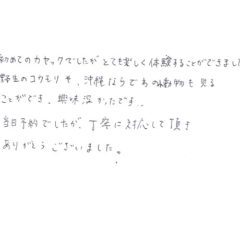 初めてのカヤックでしたがとても楽しく体験することができました
野生のコウモリや、沖縄ならではの植物も見る
ことができ、興味深かったです。
当日予約でしたが、丁寧に対応して頂き
ありがとうございました。